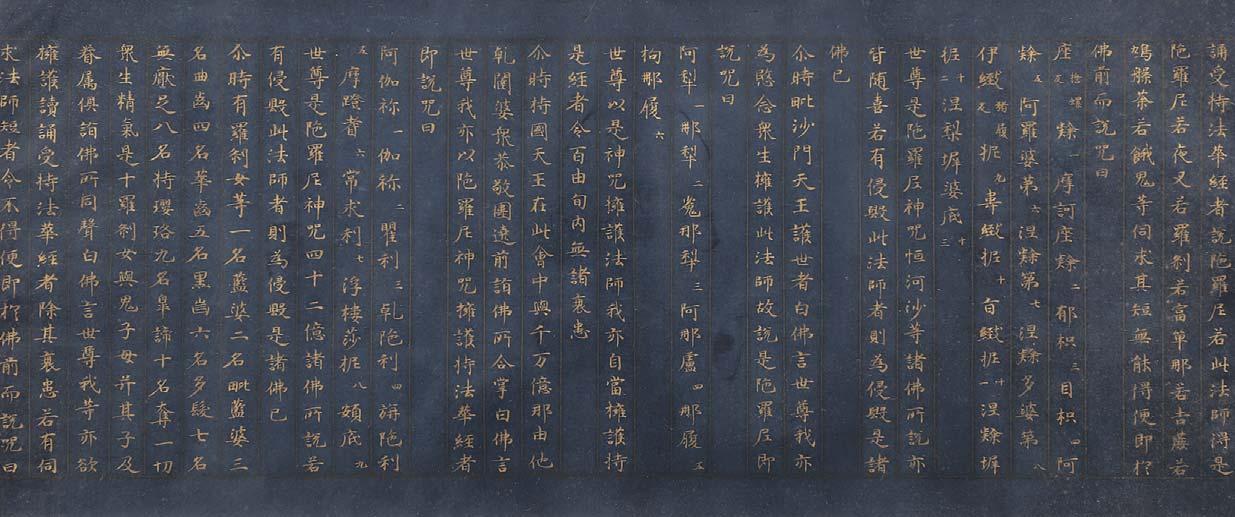 誦受持法華經者說陁羅尼若此法師得是
陁羅尼若夜叉若羅剎若富單那若吉蔗若
鳩槃荼若餓鬼等伺求其短無能得便即於
佛前而說呪曰
座 誓螺反 隸一 摩訶座隸二 郁枳三 目枳四 阿
隸五 阿羅婆第六 涅隸第七 涅隸多婆第八
伊緻 猪履反 抳九 韋緻抳十 旨緻抳十一 涅隸墀
抳十二 涅犁墀婆底十三
世尊是陁羅尼神呪恒河沙等諸佛所說亦
皆随喜若有侵毀此法師者則為侵毀是諸
佛已
尒時毗沙門天王護世者白佛言世尊我亦
為愍念衆生擁護此法師故說是陁羅尼即
說呪曰
阿犁一 那犁二 㝹那犁三 阿那盧四 那履五
拘那履六
世尊以是神呪擁護法師我亦自當擁護持
是經者令百由旬內無諸衰患
尒時持國天王在此會中與千万億那由他
乹闥婆衆恭敬圍遶前詣佛所合掌白佛言
世尊我亦以陁羅尼神呪擁護持法華經者
即說呪曰
阿伽祢一 伽祢二 瞿利三 乹陁利四 旃陁利
五 摩蹬耆六 常求利七 浮樓莎抳八 頞底九
世尊是陁羅尼神呪四十二億諸佛所說若
有侵毀此法師者則為侵毀是諸佛已
尒時有羅剎女等一名藍婆二名毗藍婆三
名曲齒四名華齒五名黑齒六名多髮七名
無猒足八名持瓔珞九名睪諦十名奪一切
衆生精氣是十羅剎女與鬼子母并其子及
眷属俱詣佛所同聲白佛言世尊我等亦欲
擁護讀誦受持法華經者除其衰患若有伺
求法師短者令不得便即於佛前而說呪曰